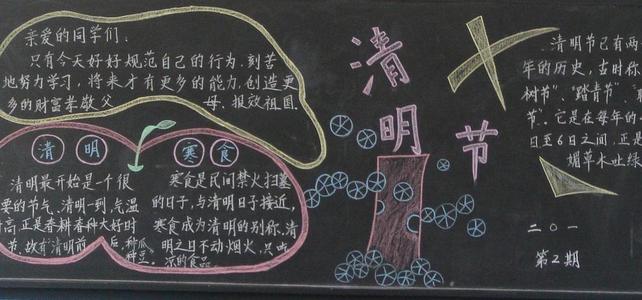 亲爱的同学们：
只有今天好好规范自己的行为，刻苦
地努力学习，将来才有更多的能力，创造更
多的财富孝敬父　　　母，报效祖国.
清明
清明最开始是一个很
要的节气，清明一到，气温
高，正是春耕春种大好时
节，故有“清明前
后，种瓜
种豆。
寒食
寒食是民间禁火扫墓
的日子，与清明日子接近，
寒食成为清明的别称，清
明之日不动烟火，只吃
凉的食品
清明节
清明节已有两
年的历史，古时称
树节”、“踏青节”、
节、它是在每年的
日至6日之间，正是
媚草木吐绿
二〇一
第2期